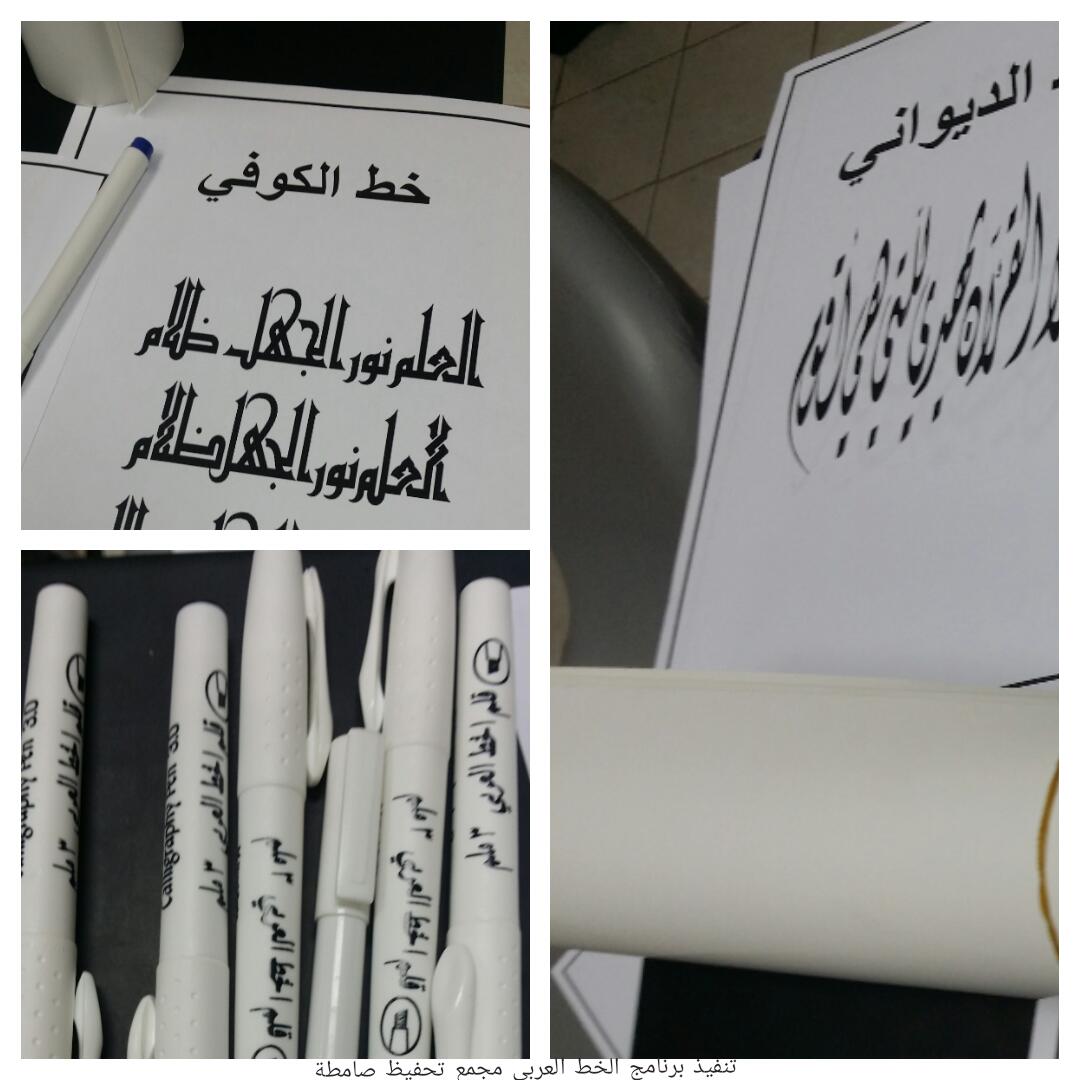 خط الكوفي
العلم نور الجهل ظلام
العلم نور الجهل ظلام
الديواني
القرآن يهدي للتي هي أقوم
قلم الخط العربي ٣ ملم
Calligraphy Pen 3.0
قلم الخط العربي ٣ ملم
Calligraphy Pen 3.0
قلم الخط العربي ٣ ملم
قلم الخط العربي ٣ ملم
قلم الخط العربي ٣ ملم
تنفيذ برنامج الخط العربي مجمع تحفيظ صامطة